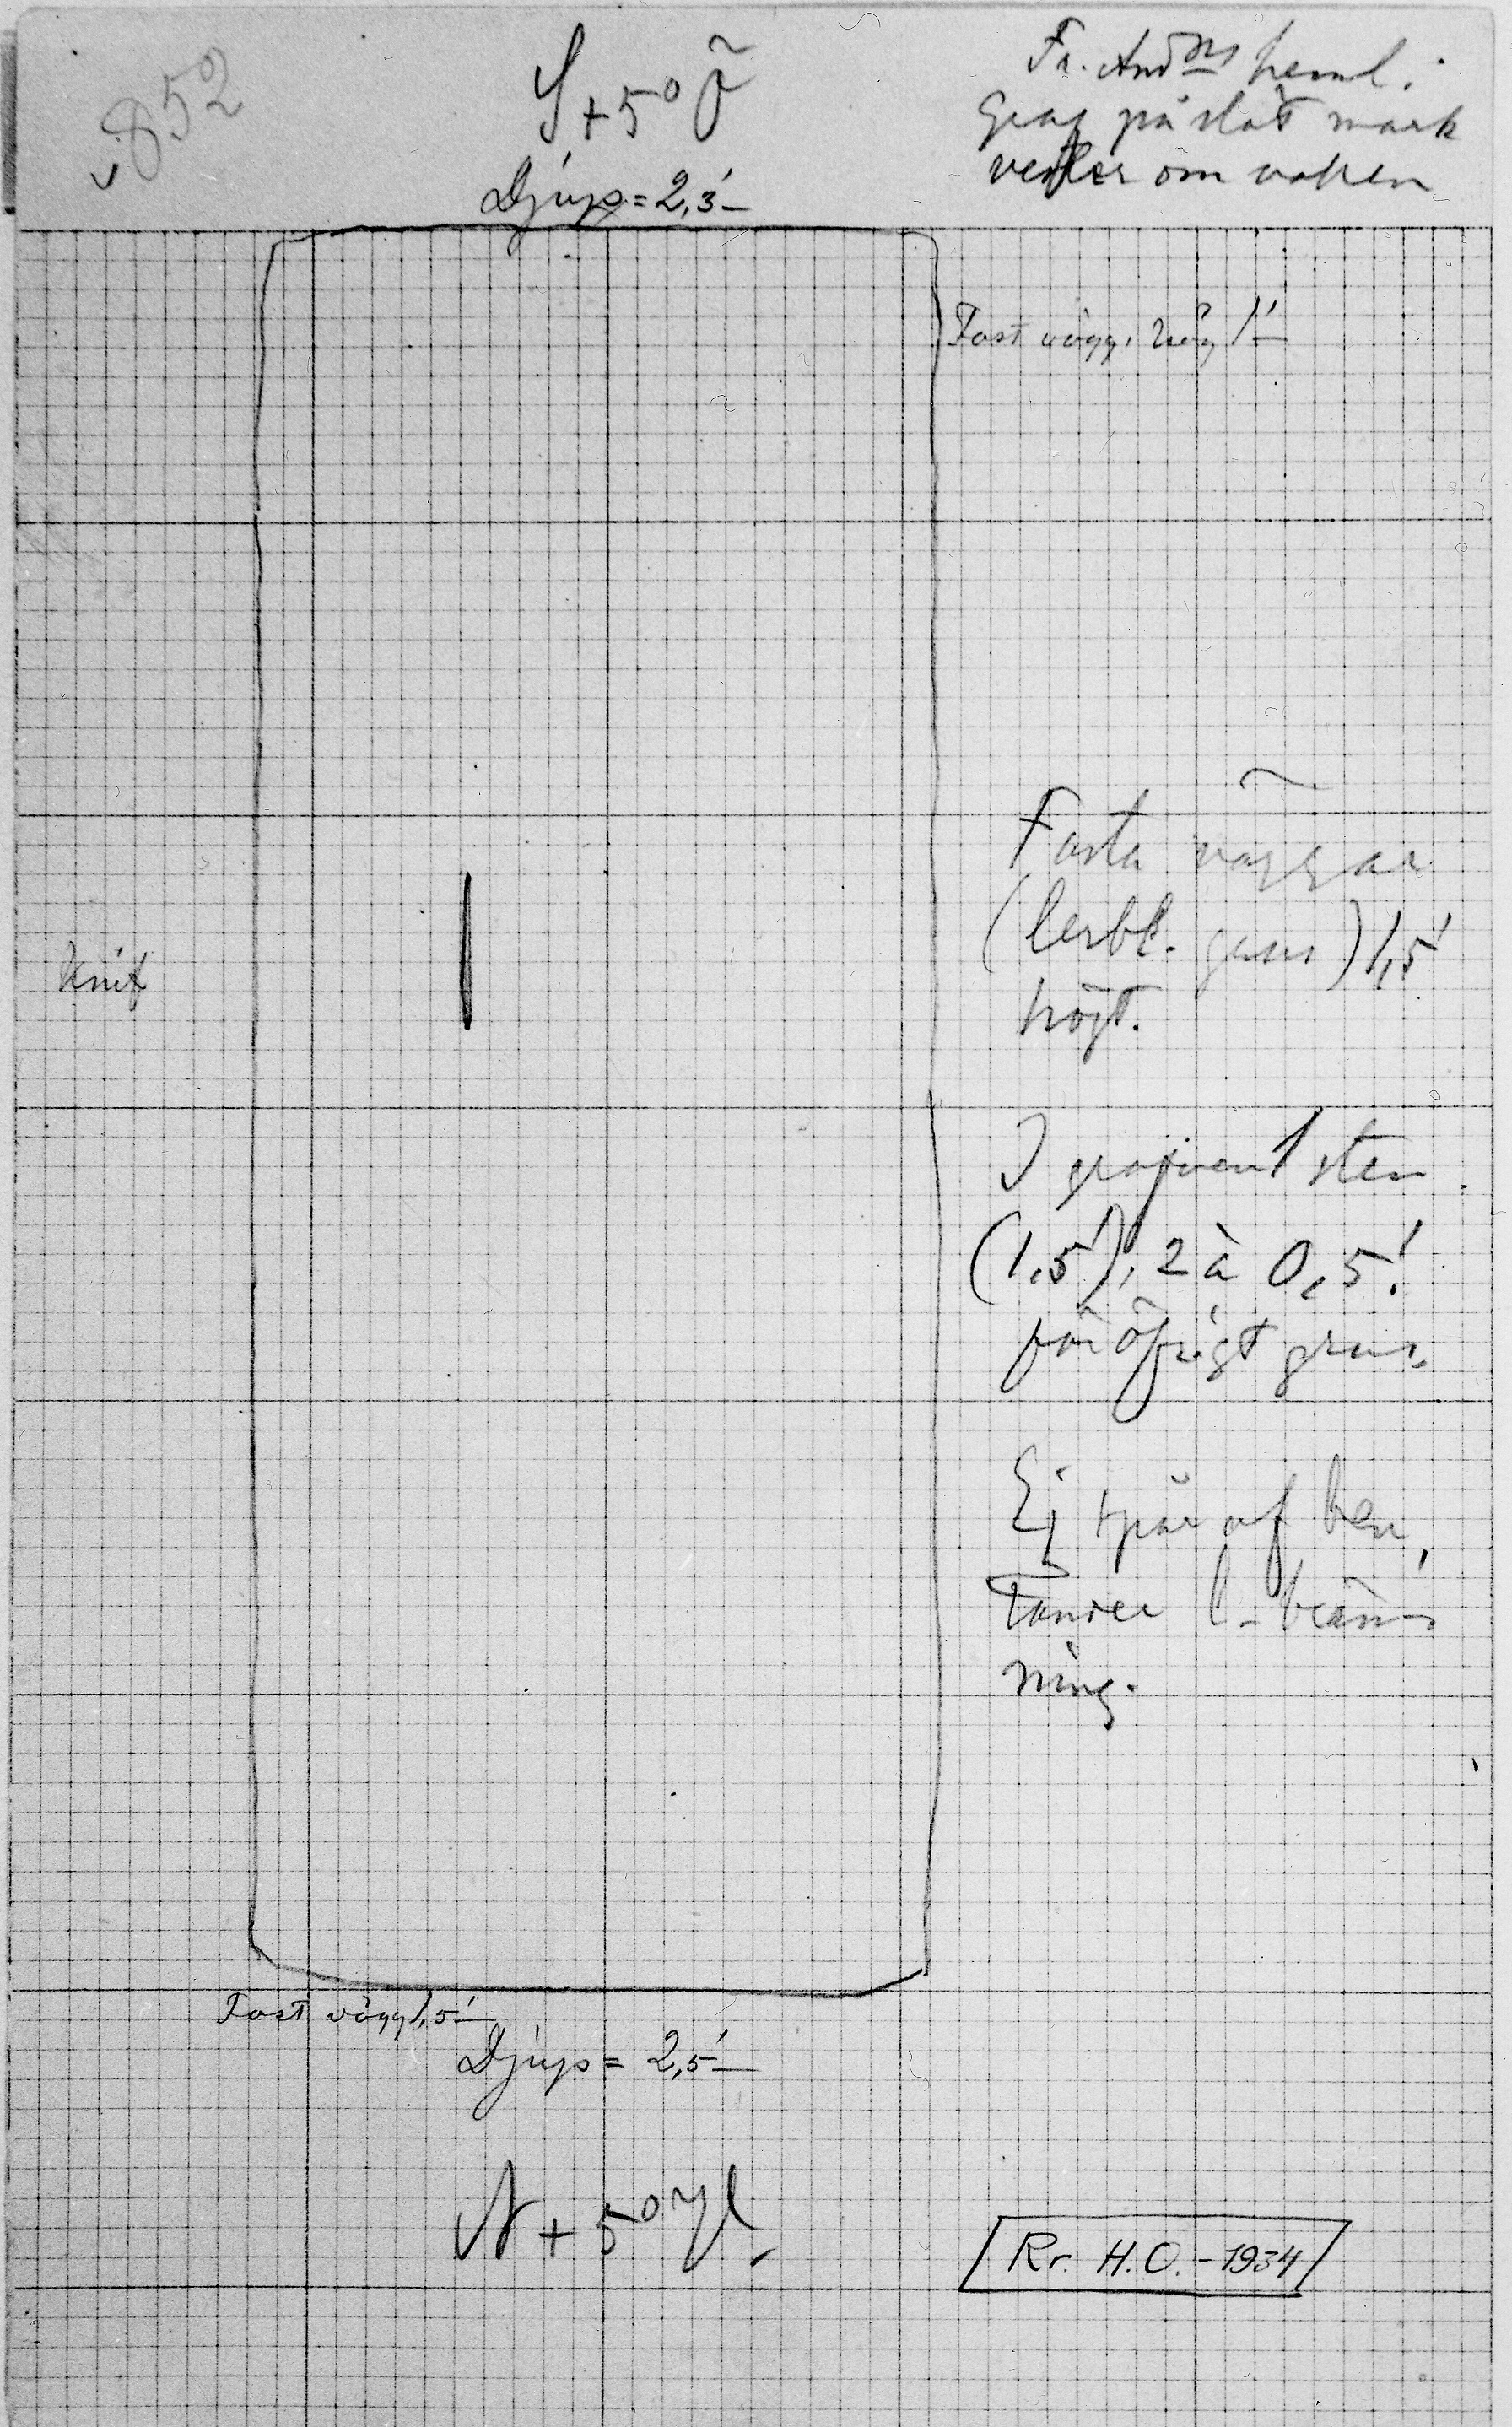 852
S + 5° Ö
Djup = 2,3'
Fr. And:ns heml.
Graf på slät mark
vester om vaken
Fast vägg, hög 1'
Fasta väggar
(lerbl. grus) 1,5'
högt.
Knif
I grafven 1 sten
(1,5'), 2 à 0,5'
för öfrigt grus.
Ej spår af ben,
Tänder l. brän-
ning.
Fast vägg 1,5'
Djup = 2,5'
N + 5° V.
Rr. H.O. - 1934